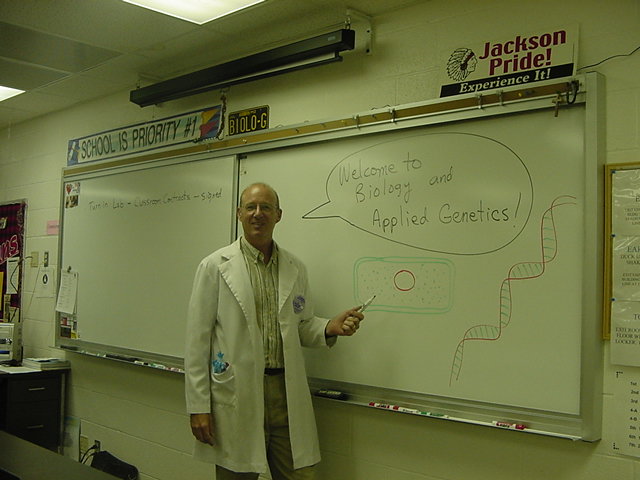 Jackson
Pride!
Experience It!
SCHOOL IS PRIORITY #1
BIOLO-G
Turn in Lab - Classroom Contracts - signed
Welcome to
Biology and
Applied Genetics!